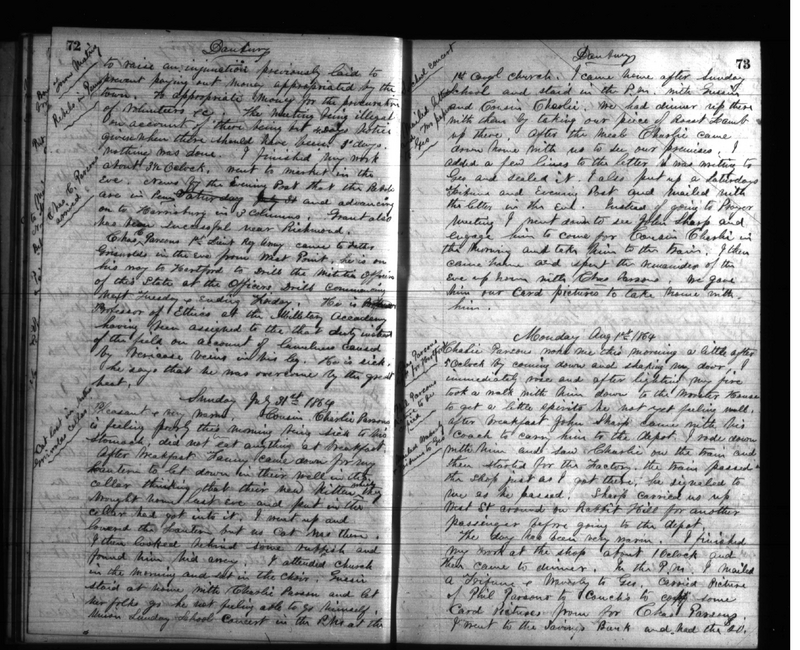 72
Danbury
to raise an injunction previously laid to
prevent paying out money appropriated by the
town. To appropriate Money for the procuration
of Volunteers &c. The meeting being illegal
on account of there being but 4 days notice
given when there should have been 5 days.
nothing was done. I finished my work
about 3½ Oclock. went to market in the
Eve. News by the Evening Post that the Rebels
are in Penn and advancing
on to Harrisburg in 3 Columns. Grant also
has been successful near Richmond.
Chas. Parsons 1st Lieut Reg Army came to
Griswolds in the eve from West Point. he is on
his way to Hartford to Drill the Militia Officers
of this State at the Officers Drill commencing
next Tuesday & Ending Friday. He is
Professor of Ethics at the Military Accademy
having been assigned to the that duty instead
of the field on account of Lameness caused
by Vericose Veins in his leg. He is sick.
he says that he was overcome by the great
heat.
Sunday July 31st 1864
Pleasant & very warm. Cousin Charlie Parsons
is feeling poorly this morning being sick to his
stomach. did not eat anything at breakfast.
After breakfast Fanny came down for my
Lantern to let down in their well in their
cellar thinking that their new Kitten which they
brought home last eve and put in the
cellar had got into it. I went up and
lowered the Lantern but no Cat was there.
I then looked behind some rubbish and
found him hid away. I attended church
in the morning and sat in the Choir. Gussie
staid at home with Charlie Parsons and let
her folks go he not feeling able to go himself.
Union Sunday School Concert in the P.M. at the
73
Danbury
1st Congl church. I came home after Sunday
School and staid in the P.M. with Gussie
and Cousin Charlie. We had dinner up there
with them by taking our piece of Roast Lamb
up there. After the meal Charlie came
down home with us to see our premises. I
added a few lines to the letter I was writing to
Geo and sealed it. I also put up a Saturdays
Tribune and Evening Post and mailed with
the letter in the Eve. Instead of going to Prayer
Meeting I went down to see John Sharp and
engage him to come for Cousin Charlie in
the Morning and take him to the Train. I then
came home and spent the remainder of the
Eve up home with Chas Parsons. We gave
him our Card pictures to take home with
him.
Monday Aug 1st 1864
Charlie Parsons woke me this morning a little after
5 Oclock by coming down and
immediately rose and after lighting my fire
took a walk with him down to the Wooster House
to get a little spirits he not yet feeling well.
after breakfast John Sharp came with his
Coach to carry him to the depot. I rode down
with him and saw Charlie on the train and
then started for the Factory. the train passed
the shop just as I got there. he signaled to
me as he passed. Sharp carried us up
West St around on Rabbit Hill for another
passenger before going to the depot.
The day has been very warm. I finished
my work at the shop about 1 Oclock and
then came to dinner. In the P.M. I mailed
a Tribune & Weekly to Geo. Carried Picture
of Phil Parsons to to copy some
Card Pictures from for Chas Parsons.
I went to the Savings Bank and had the